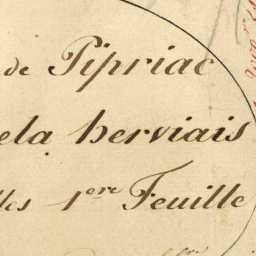 de Pipriac
ela herviais
lles 1ere Feuille